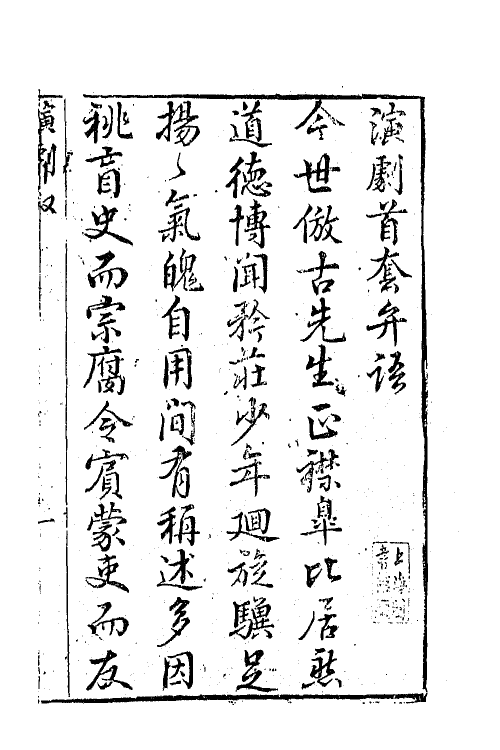 演劇首套弁語
今世倣古先生正襟臯比居然
道德博聞矜莊少年廻旋驥足
揚〻氣魄自用間有稱述多因
祧盲史而宗腐令賓蒙吏而友
演劇叙
一
上海